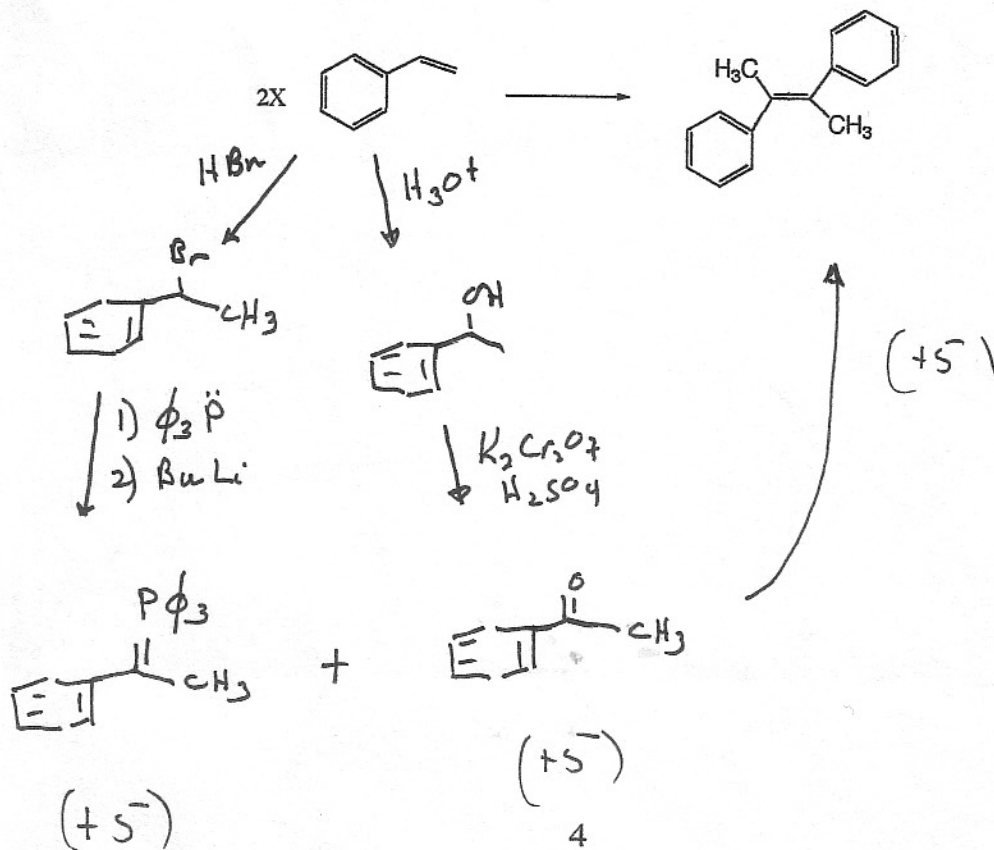 2X
H₃C
CH₃
HBr
H₃O⁺
Br
CH₃
OH
1) ϕ₃P̈
2) BuLi
K₂Cr₂O₇
H₂SO₄
(+5⁻)
Pϕ₃
CH₃
+
O
CH₃
(+5⁻)
(+5⁻)
4